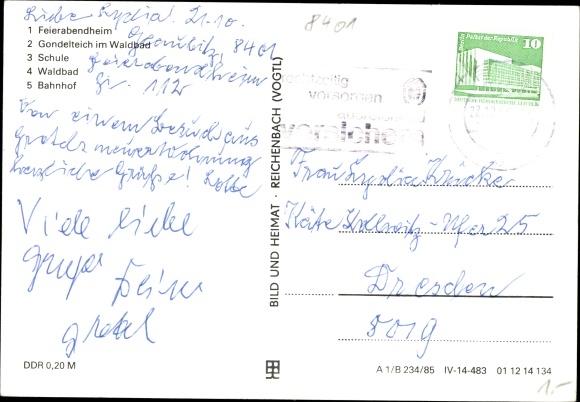 Liebe Lydia! 21.10.
8401
1 Feierabendheim
2 Gondelteich im Waldbad
3 Schule
4 Waldbad
5 Bahnhof
8401
Feierabendheim
Gr. 112
Von einem Besuch aus
herzliche Grüße!
Viele liebe
Grüße Deine
Gretel
DDR 0,20 M
BILD UND HEIMAT · REICHENBACH (VOGTL)
rechtzeitig
vorsorgen
versichern
Palast der Republik
10
Frau Lydia Krücke
Käte Kollwitz-Ufer 25
Dresden
8019
A 1/B 234/85 IV-14-483 01 12 14 134
1.-